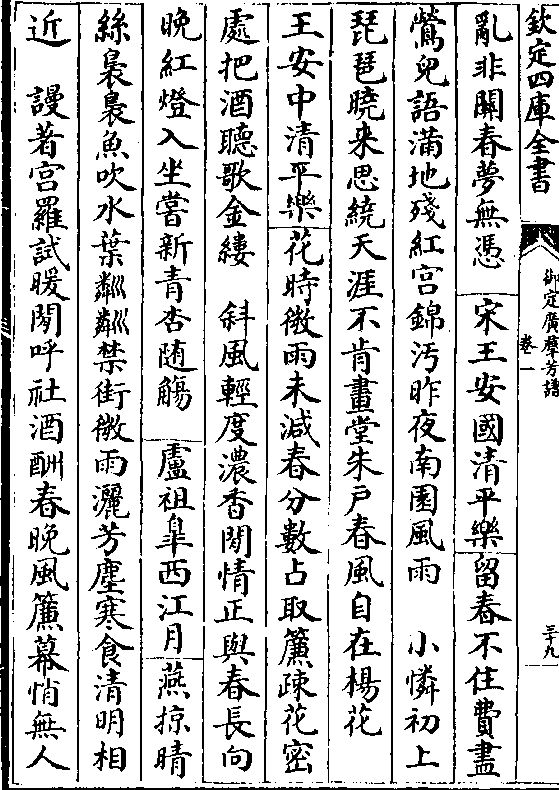 欽定四庫全書
御定廣羣芳譜
卷一
三十九
亂非關春夢無憑　宋王安國清平樂留春不住費盡
鶯兒語滿地殘紅宮錦汚昨夜南園風雨　小憐初上
琵琶曉来思繞天涯不肯畫堂朱戶春風自在楊花
王安中清平樂花時微雨未減春分數占取簾疎花密
處把酒聽歌金縷　斜風輕度濃香閒情正與春長向
晚紅燈入坐嘗新青杏随觴　盧祖皐西江月燕掠晴
絲裊裊魚吹水葉粼粼禁街微雨灑芳塵寒食清明相
近　謾著宮羅試暖閒呼社酒酬春晚風簾幕悄無人